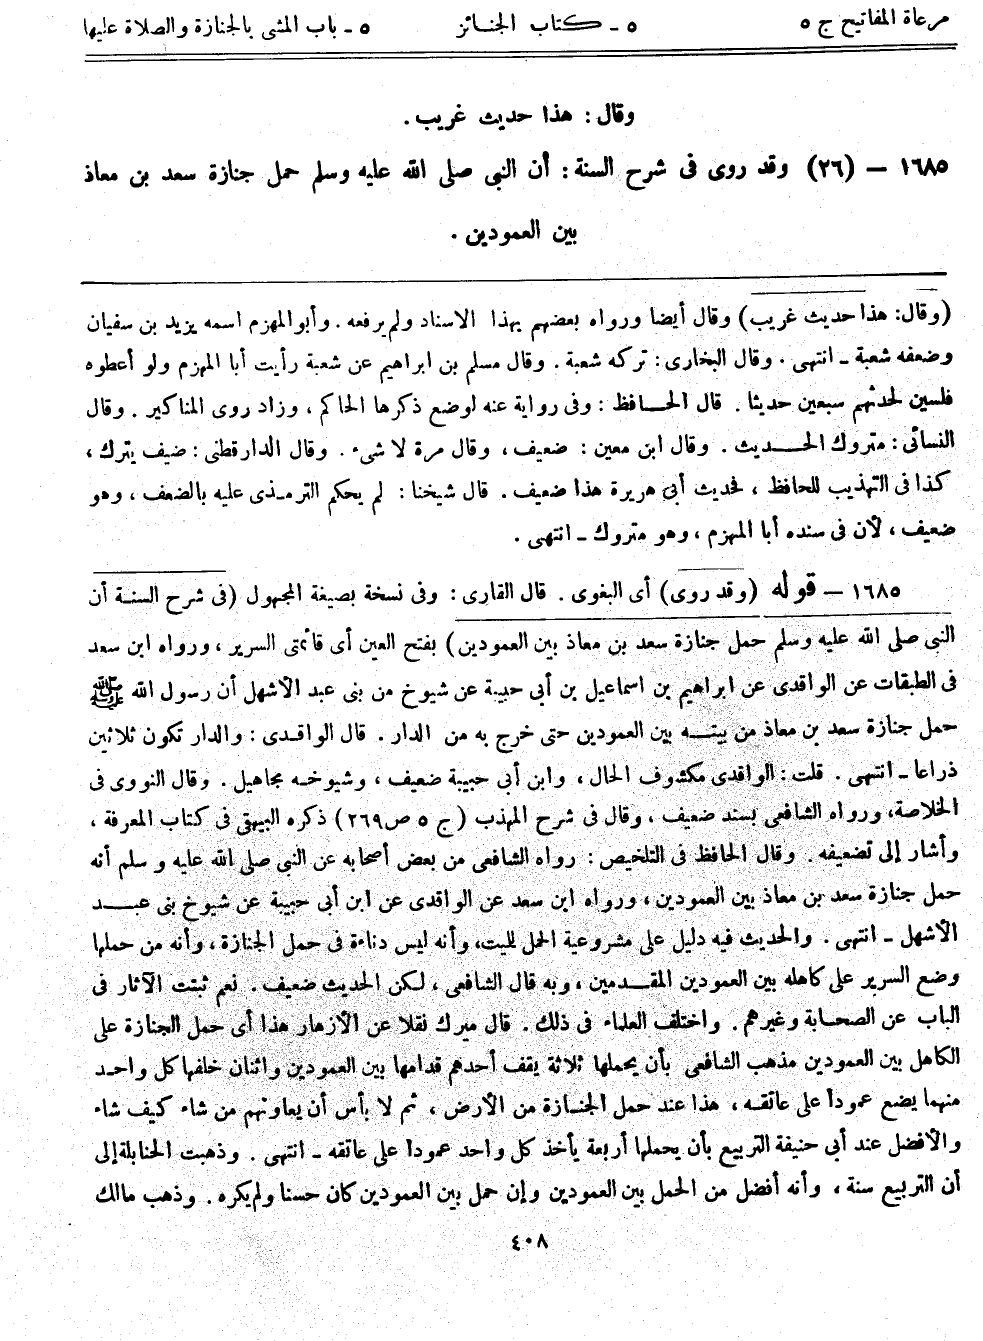 مرعاة المفاتيح ج ٥ ٥ ـ كتاب الجنائز ٥ ـ باب المشى بالجنازة والصلاة عليها
وقال : هذا حديث غريب .
١٦٨٥ – (٢٦) وقد روى فى شرح السنة : أن النبى صلى الله عليه وسلم حمل جنازة سعد بن معاذ
بين العمودين .
(وقال: هذا حديث غريب) وقال أيضا ورواه بعضهم بهذا الاسناد ولم يرفعه . وأبو المهزم اسمه يزيد بن سفيان
وضعفه شعبة ـ انتهى . وقال البخارى : تركه شعبة . وقال مسلم بن ابراهيم عن شعبة رأيت أبا المهزم ولو أعطوه
فلسين لحدثهم سبعين حديثا . قال الحافظ : وفى رواية عنه لوضع ذكرها الحاكم ، وزاد روى المناكير . وقال
النسائى : متروك الحديث . وقال ابن معين : ضعيف ، وقال مرة لا شىء . وقال الدارقطنى : ضيف يترك ،
كذا فى التهذيب للحافظ ، فحديث أبى هريرة هذا ضعيف . قال شيخنا : لم يحكم الترمذى عليه بالضعف ، وهو
ضعيف ، لأن فى سنده أبا المهزم ، وهو متروك ـ انتهى .
١٦٨٥ – قوله (وقد روى) أى البغوى . قال القارى : وفى نسخة بصيغة المجهول (فى شرح السنة أن
النبى صلى الله عليه وسلم حمل جنازة سعد بن معاذ بين العمودين) بفتح العين أى قائمتى السرير ، ورواه ابن سعد
فى الطبقات عن الواقدى عن ابراهيم بن اسماعيل بن أبى حبيبة عن شيوخ من بنى عبد الأشهل أن رسول الله ﷺ
حمل جنازة سعد بن معاذ من بيته بين العمودين حتى خرج به من الدار . قال الواقدى : والدار تكون ثلاثين
ذراعا ـ انتهى . قلت : الواقدى مكشوف الحال ، وابن أبى حبيبة ضعيف ، وشيوخه مجاهيل . وقال النووى فى
الخلاصة، ورواه الشافعى بسند ضعيف ، وقال فى شرح المهذب (ج ٥ ص ٢٦٩) ذكره البيهقى فى كتاب المعرفة ،
وأشار إلى تضعيفه . وقال الحافظ فى التلخيص : رواه الشافعى من بعض أصحابه عن النبى صلى الله عليه و سلم أنه
حمل جنازة سعد بن معاذ بين العمودين ، ورواه ابن سعد عن الواقدى عن ابن أبى حبيبة عن شيوخ بنى عبد
الأشهل ـ انتهى . والحديث فيه دليل على مشروعية الحمل للميت، وأنه ليس دناءة فى حمل الجنازة ، وأنه من حملها
وضع السرير على كاهله بين العمودين المقدمين ، وبه قال الشافعى ، لكن الحديث ضعيف . نعم ثبتت الآثار فى
الباب عن الصحابة وغيرهم . واختلف العلماء فى ذلك . قال ميرك نقلا عن الأزهار هذا أى حمل الجنازة على
الكاهل بين العمودين مذهب الشافعى بأن يحملها ثلاثة يقف أحدهم قدامها بين العمودين واثنان خلفها كل واحد
منهما يضع عمودا على عاتقه ، هذا عند حمل الجنازة من الأرض ، ثم لا بأس أن يعاونهم من شاء كيف شاء
والأفضل عند أبى حنيفة التربيع بأن يحملها أربعة يأخذ كل واحد عمودا على عاتقه ـ انتهى . وذهبت الحنابلة إلى
أن التربيع سنة ، وأنه أفضل من الحمل بين العمودين وإن حمل بين العمودين كان حسنا ولم يكره . وذهب مالك
٤٠٨